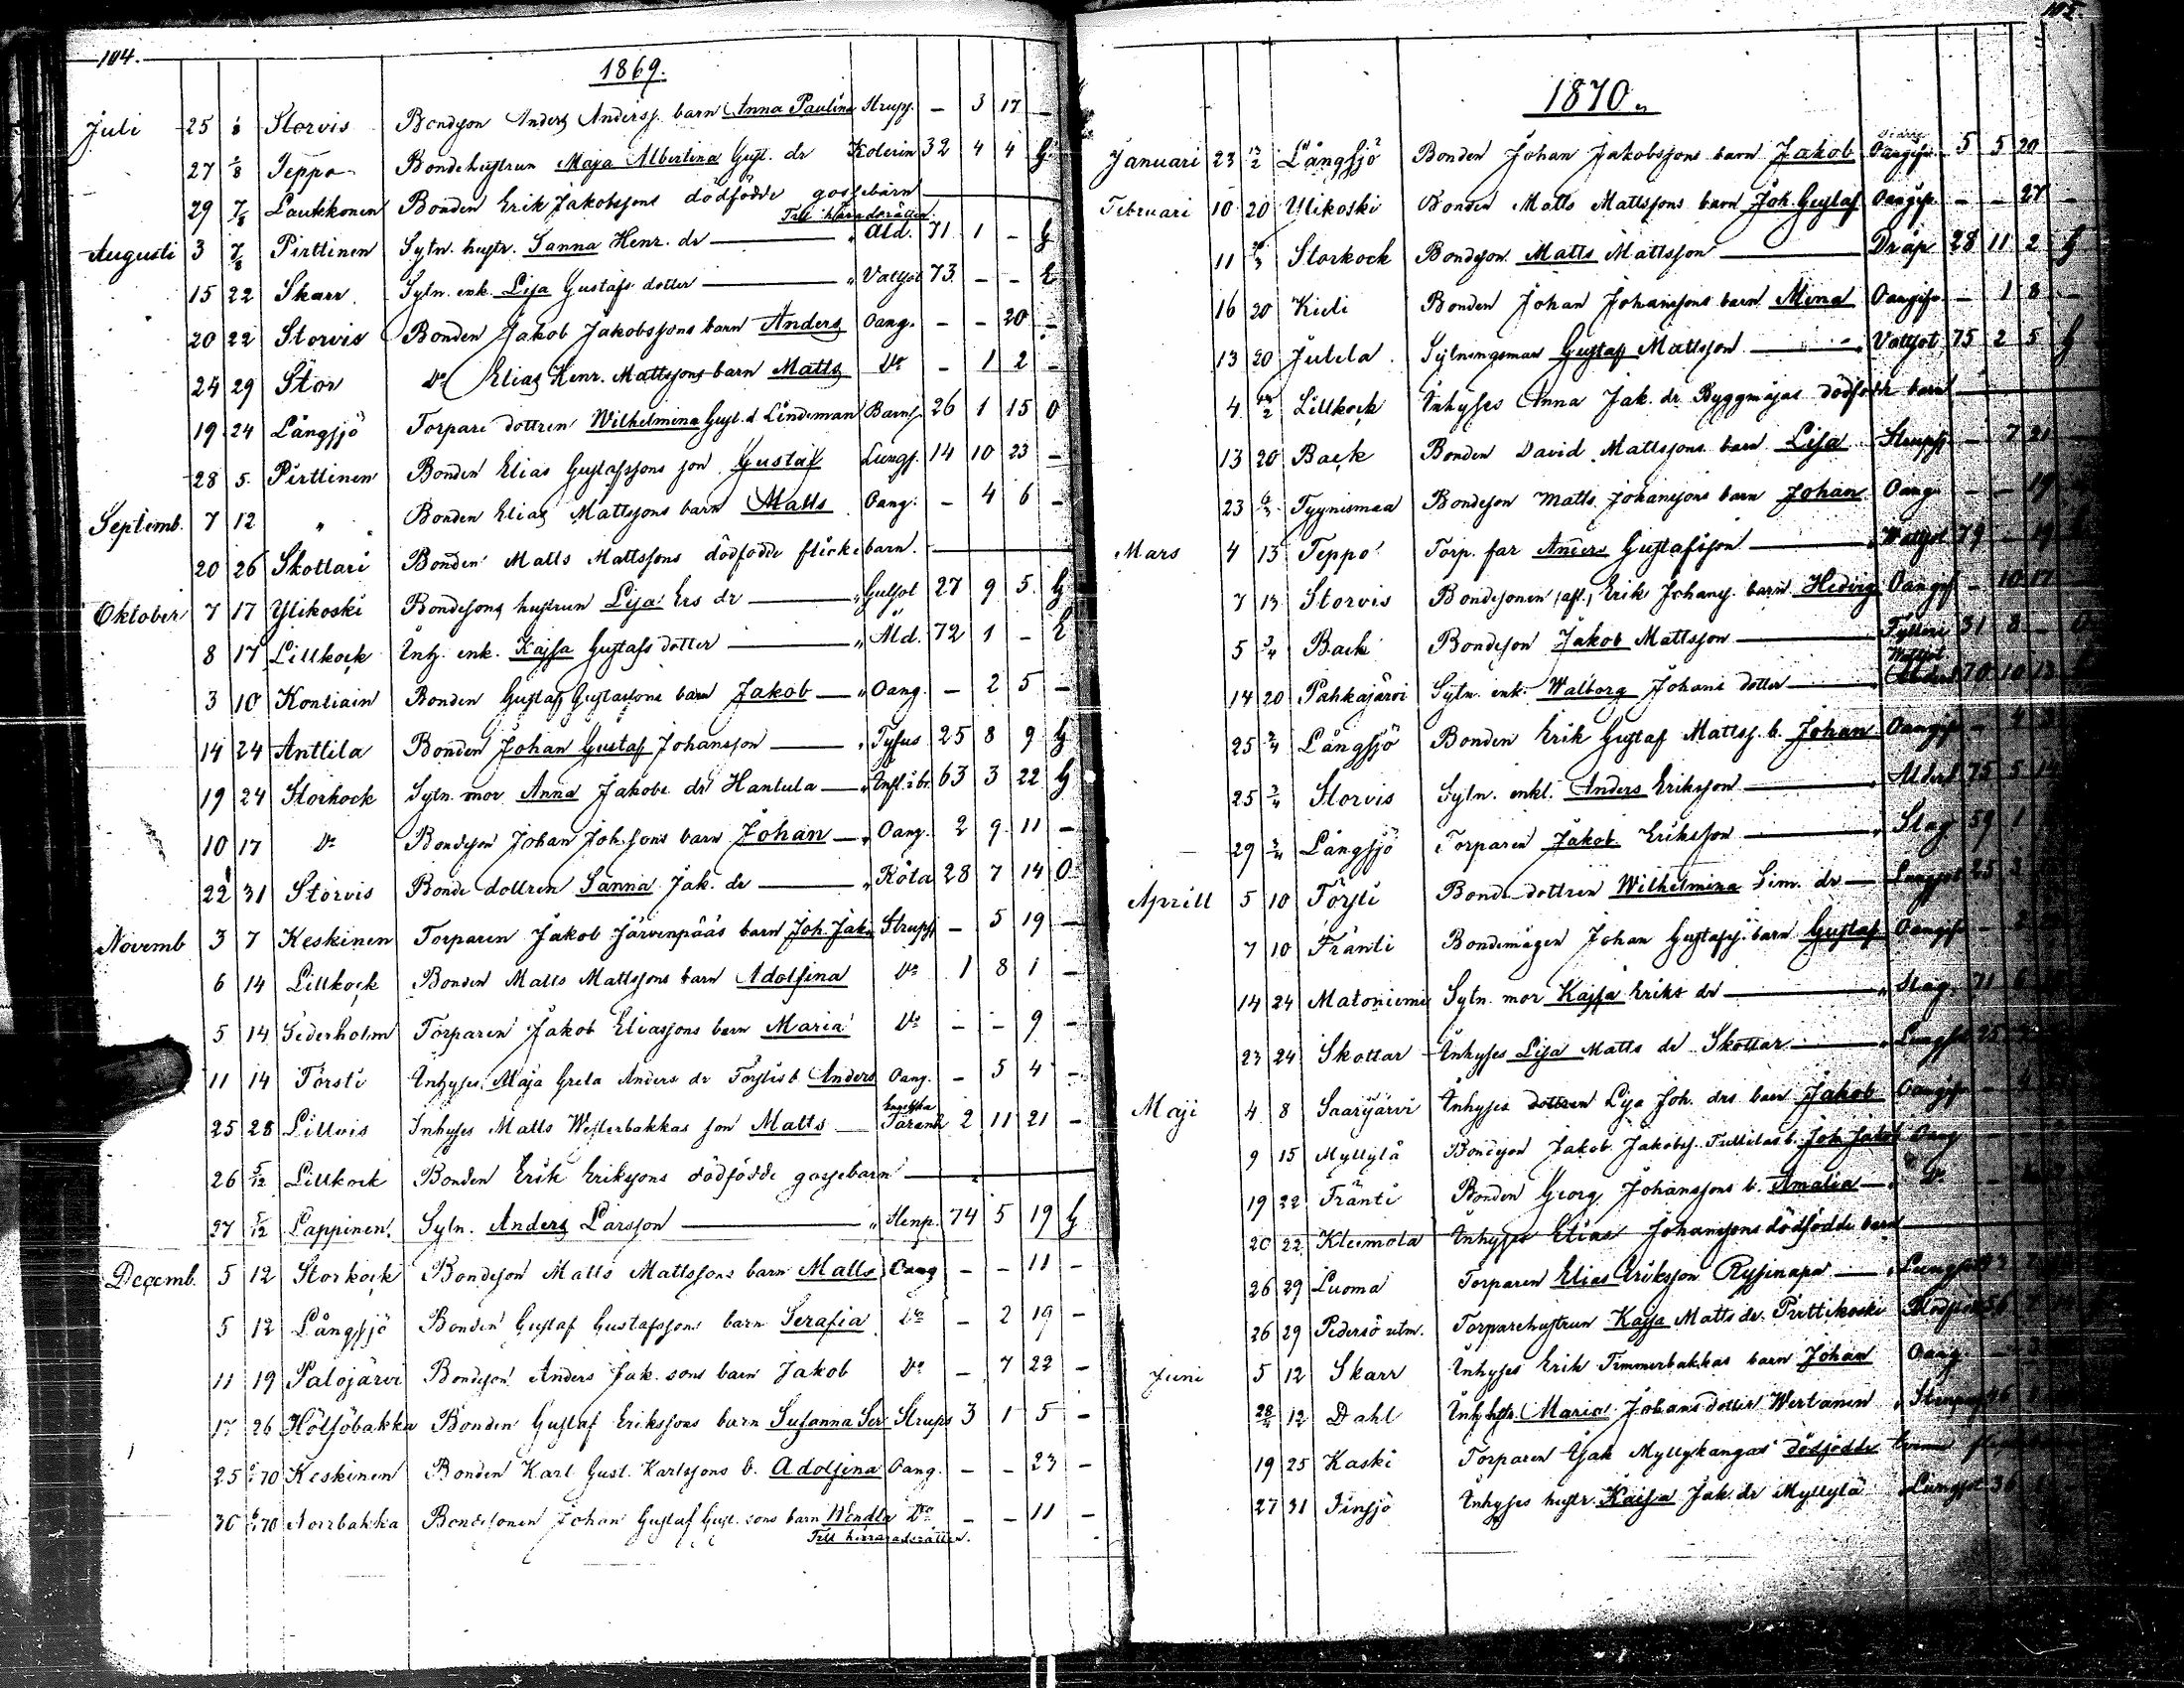 104.
1869.
Juli 25 1/8 Storvis Bondeson Anders Anderss. barn Anna Paulina Strupsj. — 3 17 —
27 1/8 Teppo Bondehustrun Maja Albertina Gust. dr Kolerin 32 4 4 G
29 7/8 Laukkonen Bonden Erik Jakobssons dödfödde gossebarn
Till häradsrätten.
Augusti 3 7/8 Pirttinen Sytn. hustr. Sanna Henr. dr — " Åld. 71 1 — G
15 22 Skarr Sytn. enk. Lisa Gustafs dotter — " Vattsot 73 — — E
20 22 Storvis Bonden Jakob Jakobssons barn Anders Oang. — — 20 —
24 29 Stor Do Elias Henr. Mattssons barn Matts Do — 1 2 —
19 24 Långsjö Torpare dottren Wilhelmina Gust. d Lindeman Barns. 26 1 15 O
28 5 Pirttinen Bonden Elias Gustafssons son Gustaf Lungs. 14 10 23 —
Septemb. 7 12 " Bonden Elias Mattssons barn Matts Oang. — 4 6 —
20 26 Skottari Bonden Matts Mattssons dödfödde flickebarn.
Oktober 7 17 Ylikoski Bondesons hustrun Lisa Ers dr — " Gulsot 27 9 5 G
8 17 Lillkock Inh. enk. Kajsa Gustafs dotter — " Åld. 72 1 — E
3 10 Kontiain Bonden Gustaf Gustafsons barn Jakob — " Oang. — 2 5 —
14 24 Anttila Bonden Johan Gustaf Johansson — " Tyfus 25 8 9 G
19 24 Storkock Sytn. mor Anna Jakobs dr Hantula — " Infl. i br. 63 3 22 G
10 17 Do Bondeson Johan Joh. sons barn Johan — " Oang. 2 9 11 —
22 31 Storvis Bonde dottren Sanna Jak. dr — " Röta 28 7 14 O
Novemb 3 7 Keskinen Torparen Jakob Järvenpääs barn Joh. Jak. Strupsj. — 5 19 —
6 14 Lillkock Bonden Matts Mattssons barn Adolfina Do 1 8 1 —
5 14 Sederholm Torparen Jakob Eliassons barn Maria Do — — 9 —
11 14 Törsti Inhyses Maja Greta Anders dr Törstis b Anders Oang. — 5 4 —
25 28 Lillvis Inhyses Matts Westerbakkas son Matts — Engelska 2 11 21 —
26 5/12 Lillkock Bonden Erik Erikssons dödfödde gossebarn
27 5/12 Lappinen. Sytn. Anders Larsson — " Stenp. 74 5 19 G
Decemb. 5 12 Storkock Bondeson Matts Mattssons barn Matts Oang — — 11 —
5 12 Långsjö Bonden Gustaf Gustafssons barn Serafia Do — 2 19 —
11 19 Palojärvi Bondeson Anders Jak. sons barn Jakob Do — 7 22 —
17 26 Hötsöbakka Bonden Gustaf Erikssons barn Susanna Ser Strups 3 1 5 —
25 70 Keskinen Bonden Karl Gust. Karlssons b. Adolfina Oang. — — 23 —
30 70 Norrbakka Bondesonen Johan Gustaf Gust. sons barn Wendla Do — — 11 —
Till häradsrätten.
105.
1870.
Januari 23 13/2 Långsjö Bonden Johan Jakobssons barn Jakob Oangifv. 5 5 20 —
Februari 10 20 Ylikoski Bonden Matts Mattssons barn Joh. Gustaf Oangifv. — — 27 —
11 Storkock Bondeson Matts Mattsson — Dråp 28 11 2 G
16 20 Kieli Bonden Johan Johanssons barn Mina Oangifv. — 1 8 —
13 20 Julula Sytningsman Gustaf Mattsson — " Vattsot 75 2 5 G
4 Lillkock Inhyses Anna Jak. dr Byggmäjas dödfödde barn
13 20 Back Bonden David Mattssons barn Lisa Strupsj. — 7 21
23 Tyynismaa Bondeson Matts Johanssons barn Johan Oang. — — 19
Mars 4 13 Teppo Torp. far Anders Gustafsson — Wattsot 79 — 19
7 13 Storvis Bondesonen (afl.) Erik Johans. barn Hedvig Oangif — 10 17
5 3/4 Back Bondeson Jakob Mattsson — 31 8 —
14 20 Pahkajärvi Sytn. enk. Walborg Johans dotter — 70 10 13
25 3/4 Långsjö Bonden Erik Gustaf Mattss. b. Johan Oangif — 4
25 3/4 Storvis Sytn. enkl. Anders Eriksson — " Alderd 75 5
29 3/4 Långsjö Torparen Jakob Eriksson — " Slag 59 1
Aprill 5 10 Törsti Bonde dottren Wilhelmina Sim. dr — Lungsot 25 3
7 10 Fränti Bondemågen Johan Gustafss. barn Gustaf Oangif —
14 24 Matoniemi Sytn. mor Kajsa Eriks dr — " Slag. 71 6
23 24 Skottar Inhyses Lisa Matts dr Skottar — " Lungsot 25
Maji 4 8 Saarijärvi Inhyses dottren Lisa Joh. drs barn Jakob Oangif —
9 15 Myllylä Bondeson Jakob Jakobss. b. Joh. Jakob Oang
19 22 Fränti Bonden Georg Johanssons b. Amalia — " Do
20 22 Kleimola Inhyses Elias Johanssons dödfödde barn
26 29 Luoma Torparen Elias Eriksson Rysinapa — Lungsot
26 29 Pedersö utm. Torparehustrun Kajsa Matts dr Pirttikoski Blodsot 56
Juni 5 12 Skarr Inhyses Erik Timmerbakkas barn Johan Oang.
28 12 Dahl Inh. hstr. Maria Johans dotter Wertanen
19 25 Kaski Torparen Isak Myllykangas dödfödde
27 31 Finsjö Inhyses hustr. Kaisa Jak. dr Myllylä Lungsot 36